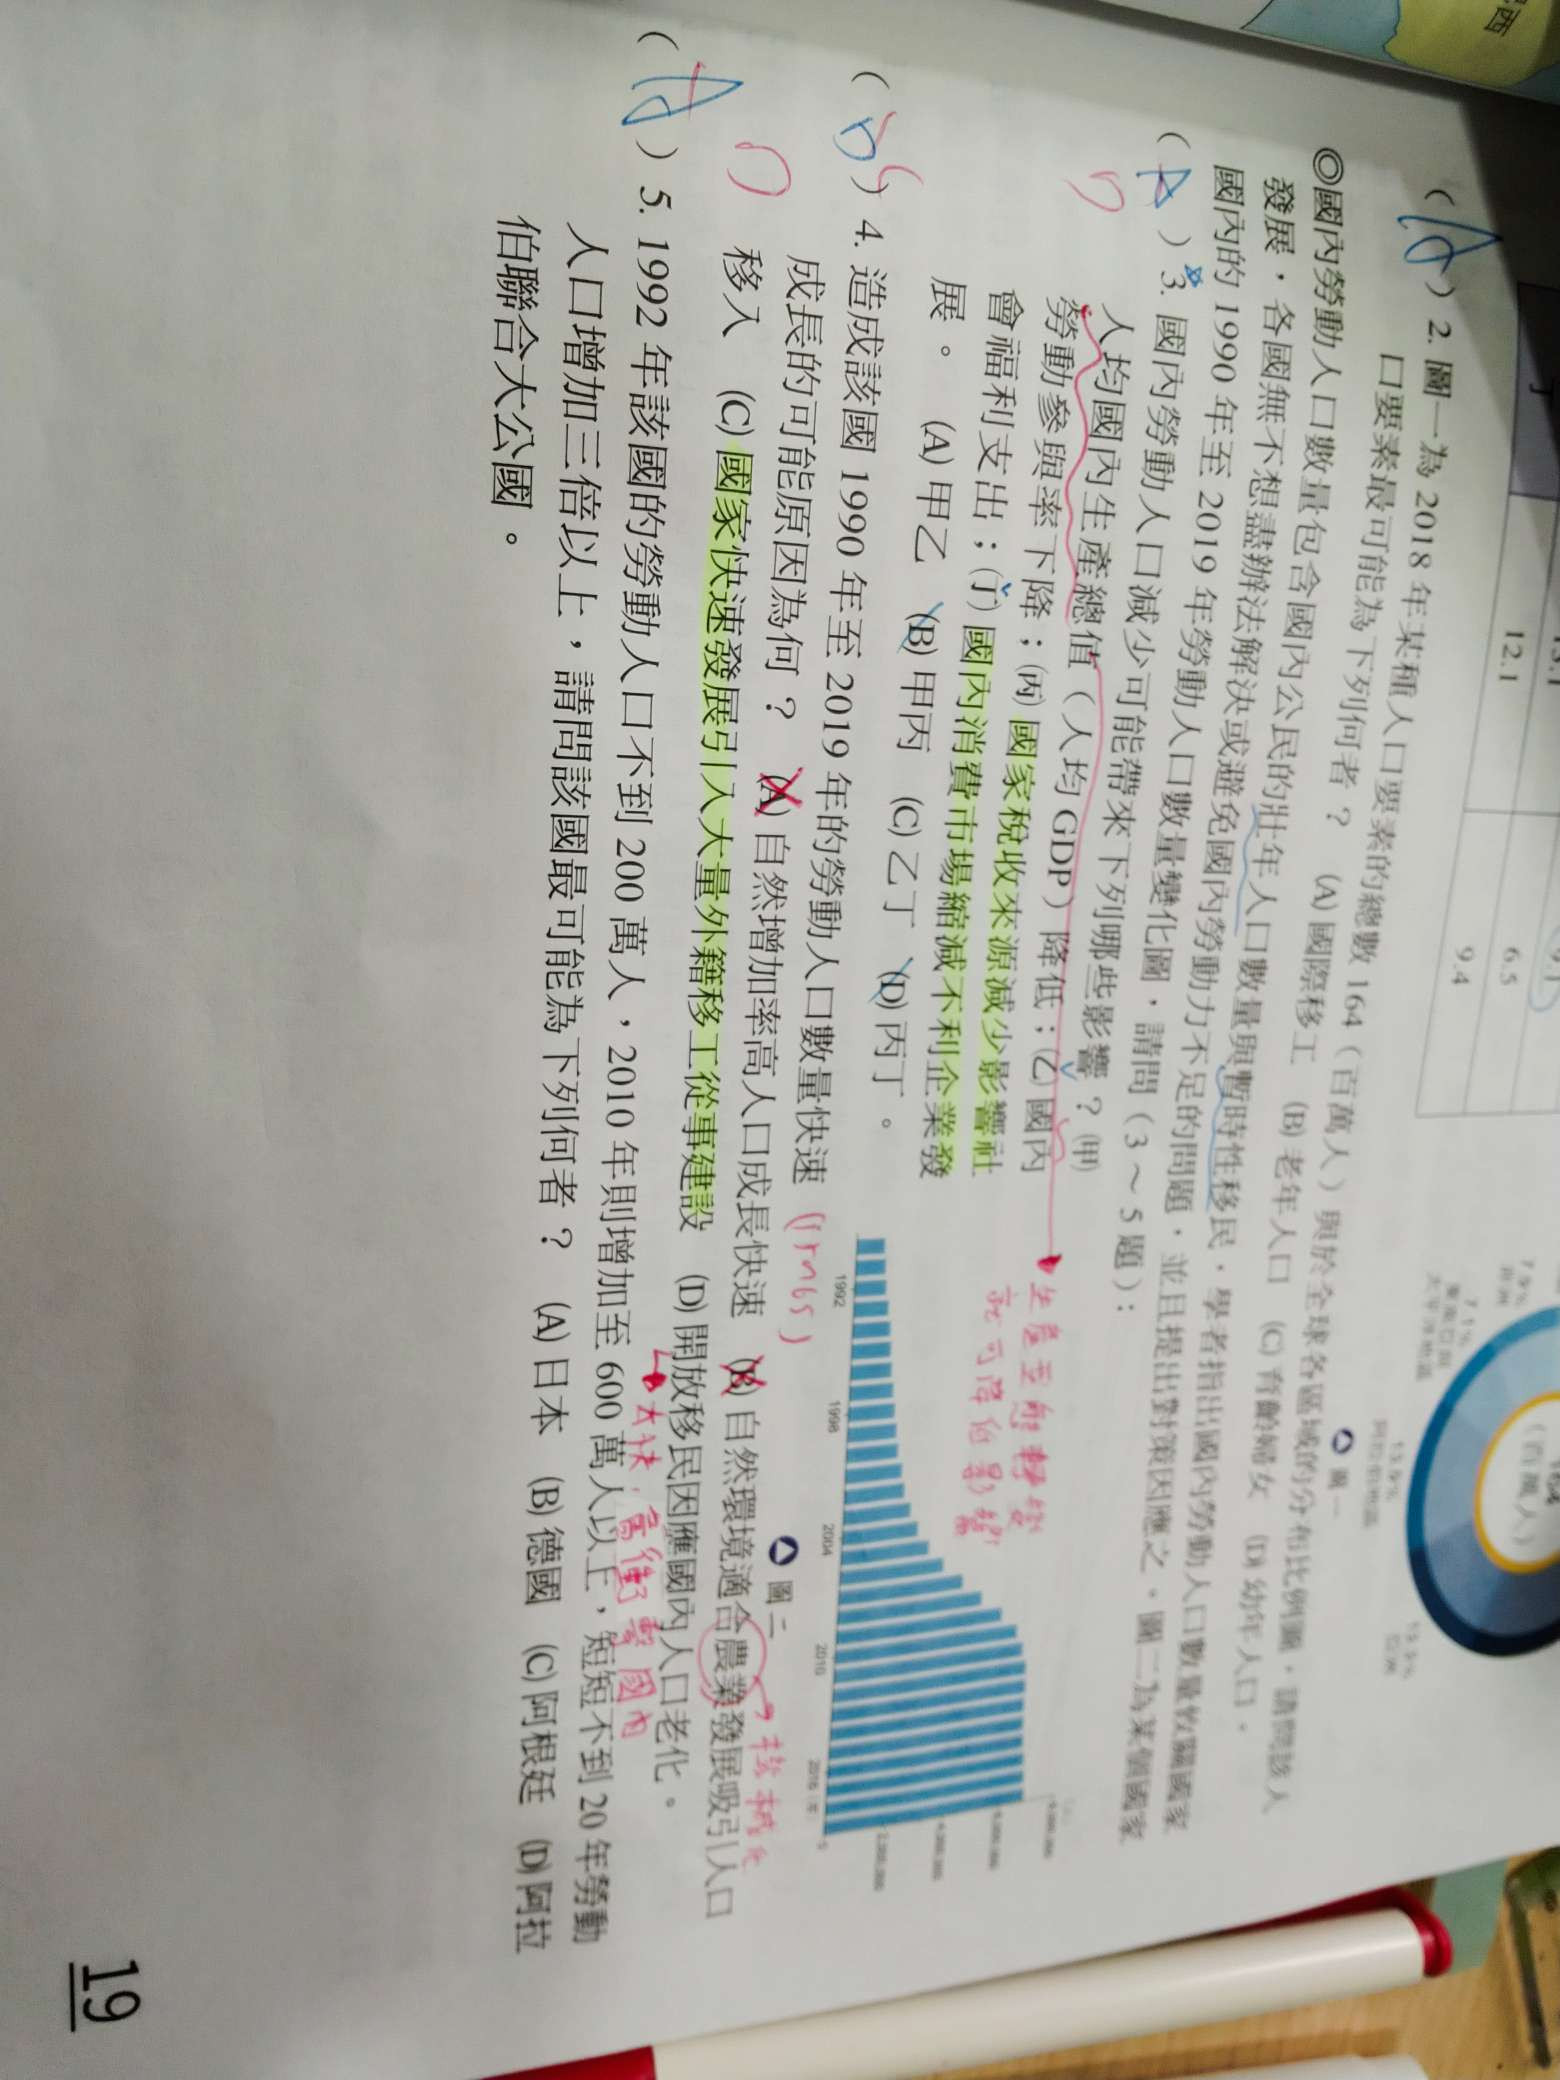 西
12.1
6.5
9.4
(百萬人)
圖一
( A ) 2. 圖一為 2018 年某種人口要素的總數 164（百萬人）與於全球各區域的分布比例圖，請問該人
口要素最可能為下列何者？ (A) 國際移工 (B) 老年人口 (C) 育齡婦女 (D) 幼年人口。
◎國內勞動人口數量包含國內公民的壯年人口數量與暫時性移民，學者指出國內勞動人口數量攸關國家
發展，各國無不想盡辦法解決或避免國內勞動力不足的問題，並且提出對策因應之。圖二為某個國家
國內的 1990 年至 2019 年勞動人口數量變化圖，請問（3～5題）：
( A ) 3. 國內勞動人口減少可能帶來下列哪些影響？(甲)
人均國內生產總值（人均 GDP）降低；(乙)國內
勞動參與率下降；(丙)國家稅收來源減少影響社
會福利支出；(丁)國內消費市場縮減不利企業發
展。 (A) 甲乙 (B) 甲丙 (C) 乙丁 (D) 丙丁。
1992
1998
2004
2010
2016
圖二
( ) 4. 造成該國 1990 年至 2019 年的勞動人口數量快速
成長的可能原因為何？ (A) 自然增加率高人口成長快速 (B) 自然環境適合農業發展吸引人口
移入 (C) 國家快速發展引入大量外籍移工從事建設 (D) 開放移民因應國內人口老化。
( A ) 5. 1992 年該國的勞動人口不到 200 萬人，2010 年則增加至 600 萬人以上，短短不到 20 年勞動
人口增加三倍以上，請問該國最可能為下列何者？ (A) 日本 (B) 德國 (C) 阿根廷 (D) 阿拉
伯聯合大公國。
19